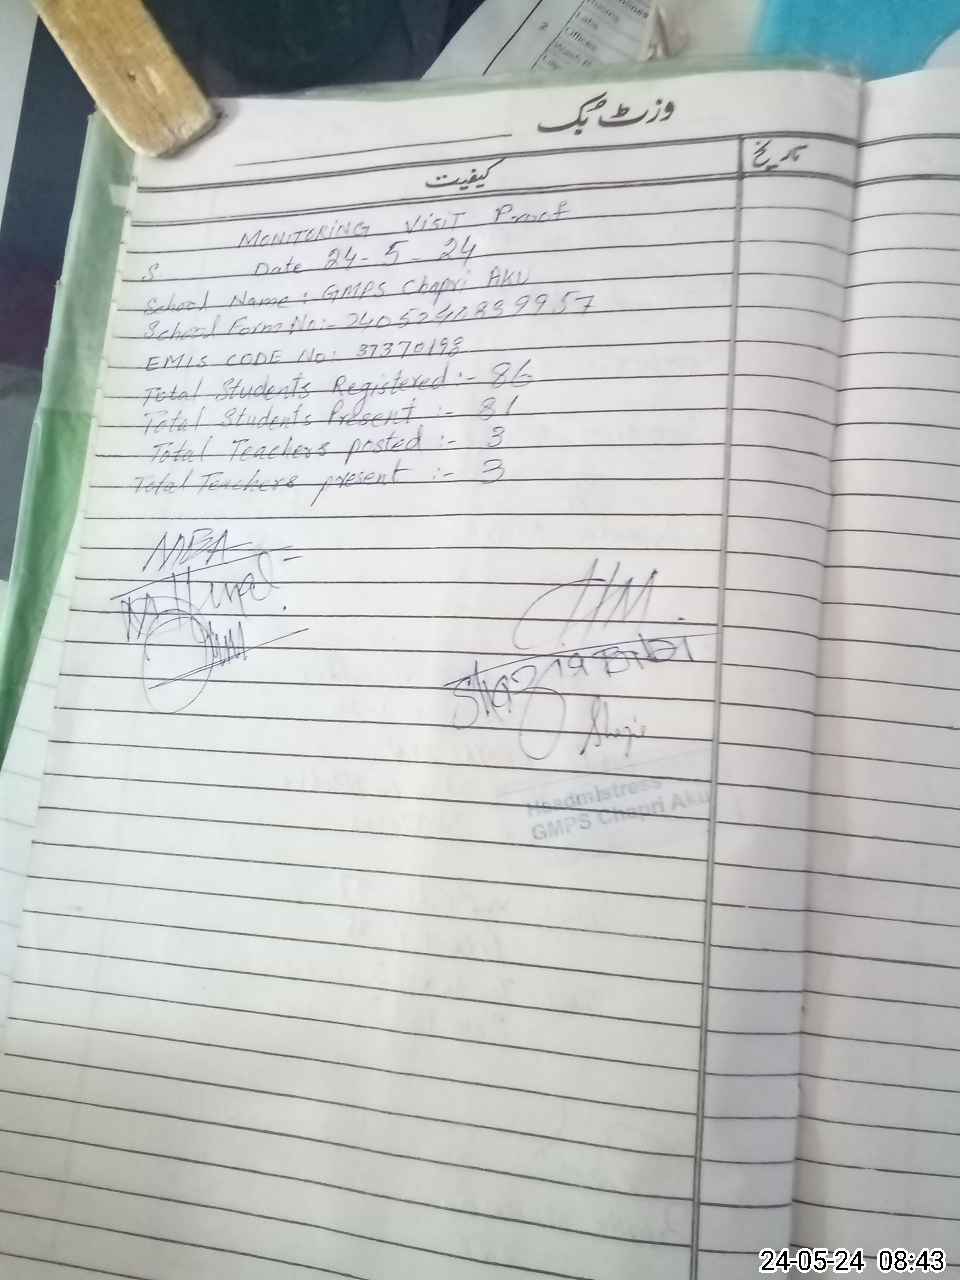 وزٹ بک
کیفیت
تاریخ
MONITORING VISIT Proof
S
Date 24-5-24
School Name: GMPS Chapri AKU
School Form No:- 2405240839957
EMIS CODE No: 37370198
Total Students Registered:- 86
Total Students Present:- 81
Total Teachers posted:- 3
Total Teachers present:- 3
MEA
HM
Shazia Bibi
Headmistress
GMPS Chapri Aku
Labs
Offices
24-05-24 08:43